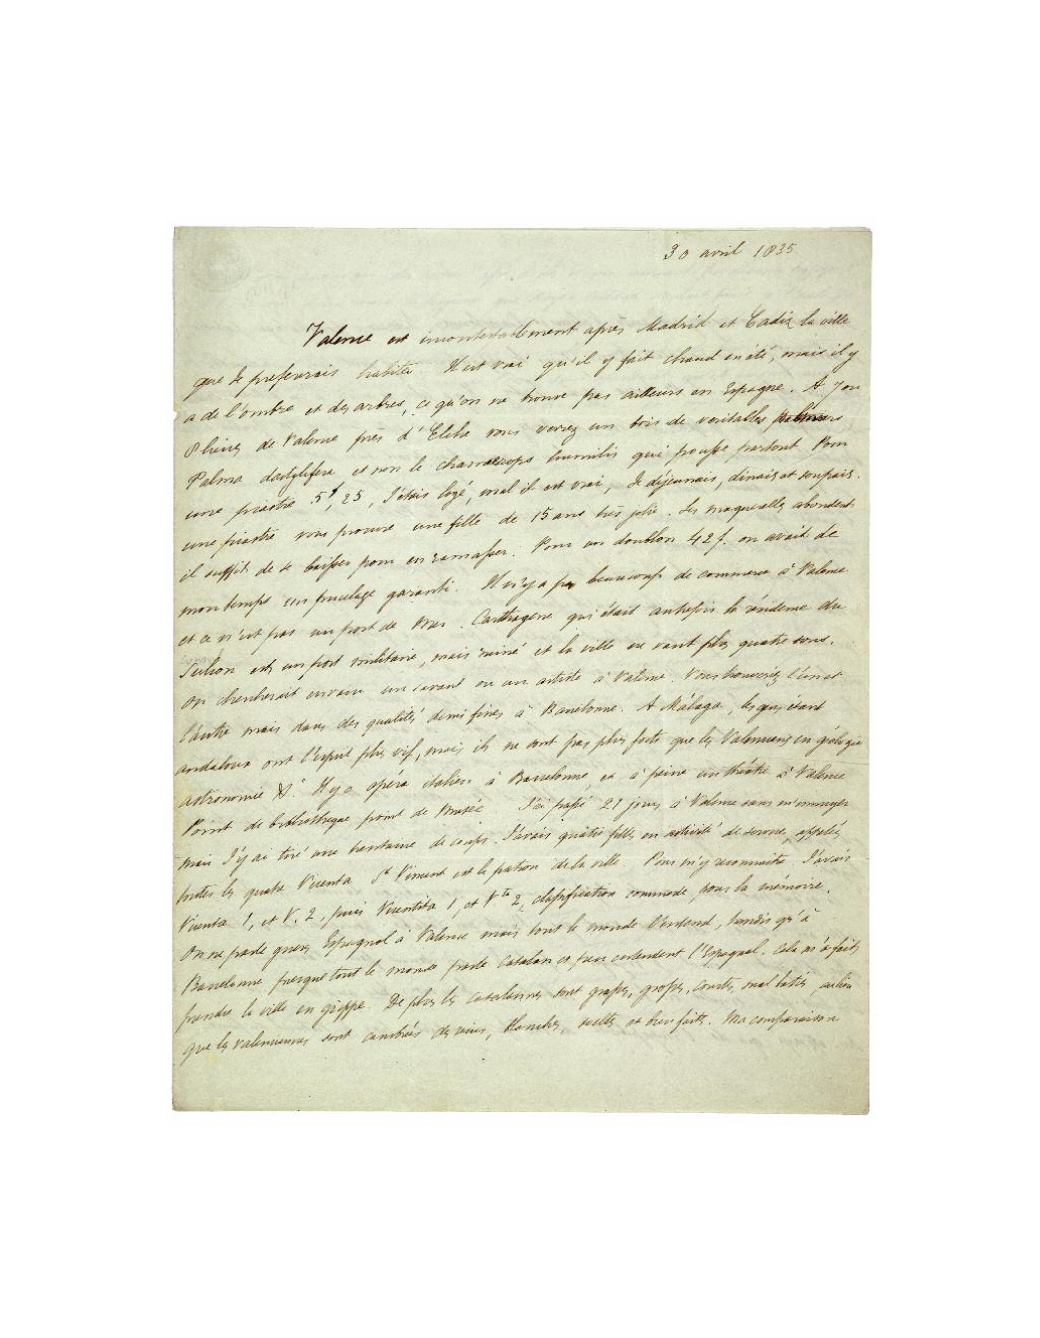 30 avril 1835
Valence est incontestablement après Madrid et Cadix la ville
que je préférerais habiter. Il est vrai qu'il y fait chaud en été, mais il y
a de l'ombre et des arbres, ce qu'on ne trouve pas ailleurs en Espagne. A
de Valence près d'Elche vous verrez un bois de veritables palmiers
Palma dactylifera et non le chamaerops humilis qui pousse partout. Pour
une piastre 5f,25, J'étais logé, mal il est vrai, Je déjeunais, dinais et soupais.
une piastre vous procure une fille de 15 ans très jolie. Les maquerelles abondent
il suffit de se baisser pour en ramasser. Pour un doublon 42f. on avait de
mon temps un pucelage garanti. Il n'y a pas beaucoup de commerce à Valence
et ce n'est pas un port de Mer. Carthagene qui était autrefois le
est un port militaire, mais ruiné et la ville ne vaut plus quatre sous.
On chercherait envain un savant ou un artiste à Valence. Vous trouveriez l'un et
l'autre mais dans des qualités demi fines à Barcelonne. A Málaga, les gens étant
andaloux ont l'esprit plus vif, mais ils ne sont pas plus forts que les Valenciens en géologie
astronomie &c. Il y a opéra italien à Barcelonne et à peine un théâtre à Valence
Point de bibliotheque point de Musée. J'ai passé 21 jours à Valence sans m'ennuyer
mais J'y ai tiré une trentaine de coups. J'avais quatre filles en activité de service, appelées
toutes les quatre Vicenta. St Vincent est le patron de la ville. Pour m'y reconnaitre J'avais
Vicenta 1, et V. 2, puis Vicentita 1, et Vta 2, classification commode pour la mémoire.
On ne parle guères Espagnol à Valence mais tout le monde l'entend, tandis qu'à
Barcelonne presque tout le monde parle Catalan et peu entendent l'Espagnol. Cela m'a fait
prendre la ville en grippe. De plus les catalannes sont grasses, grosses, courtes, mal baties, au lieu
que les valenciennes sont cambrées blanches, sveltes, et bien faites. Ma comparaison